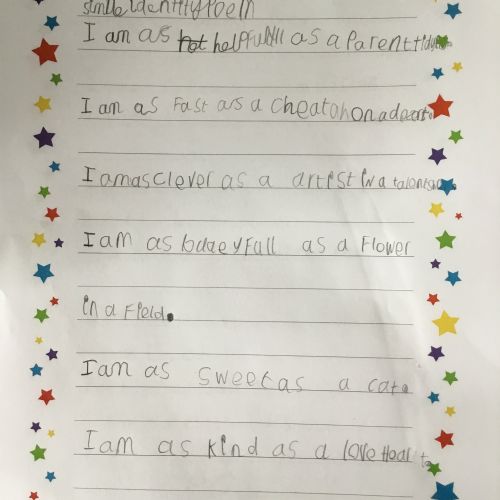 simile identity poem
I am as hot helpfull as a Parent
I am as Fast as a Cheatah on a
I am as clever as a artist in a
I am as bdaeyfull as a Flower
in a Field.
I am as sweet as a cat
I am as kind as a love Heart